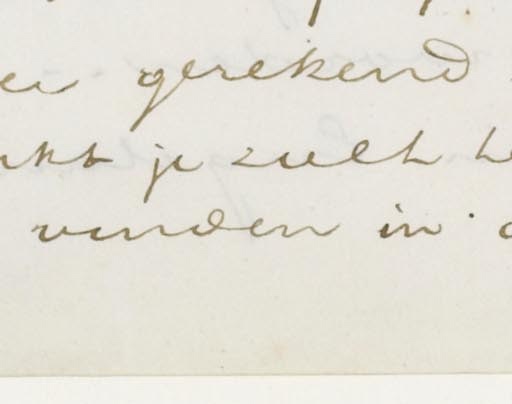 gerekend
je zult
vinden in